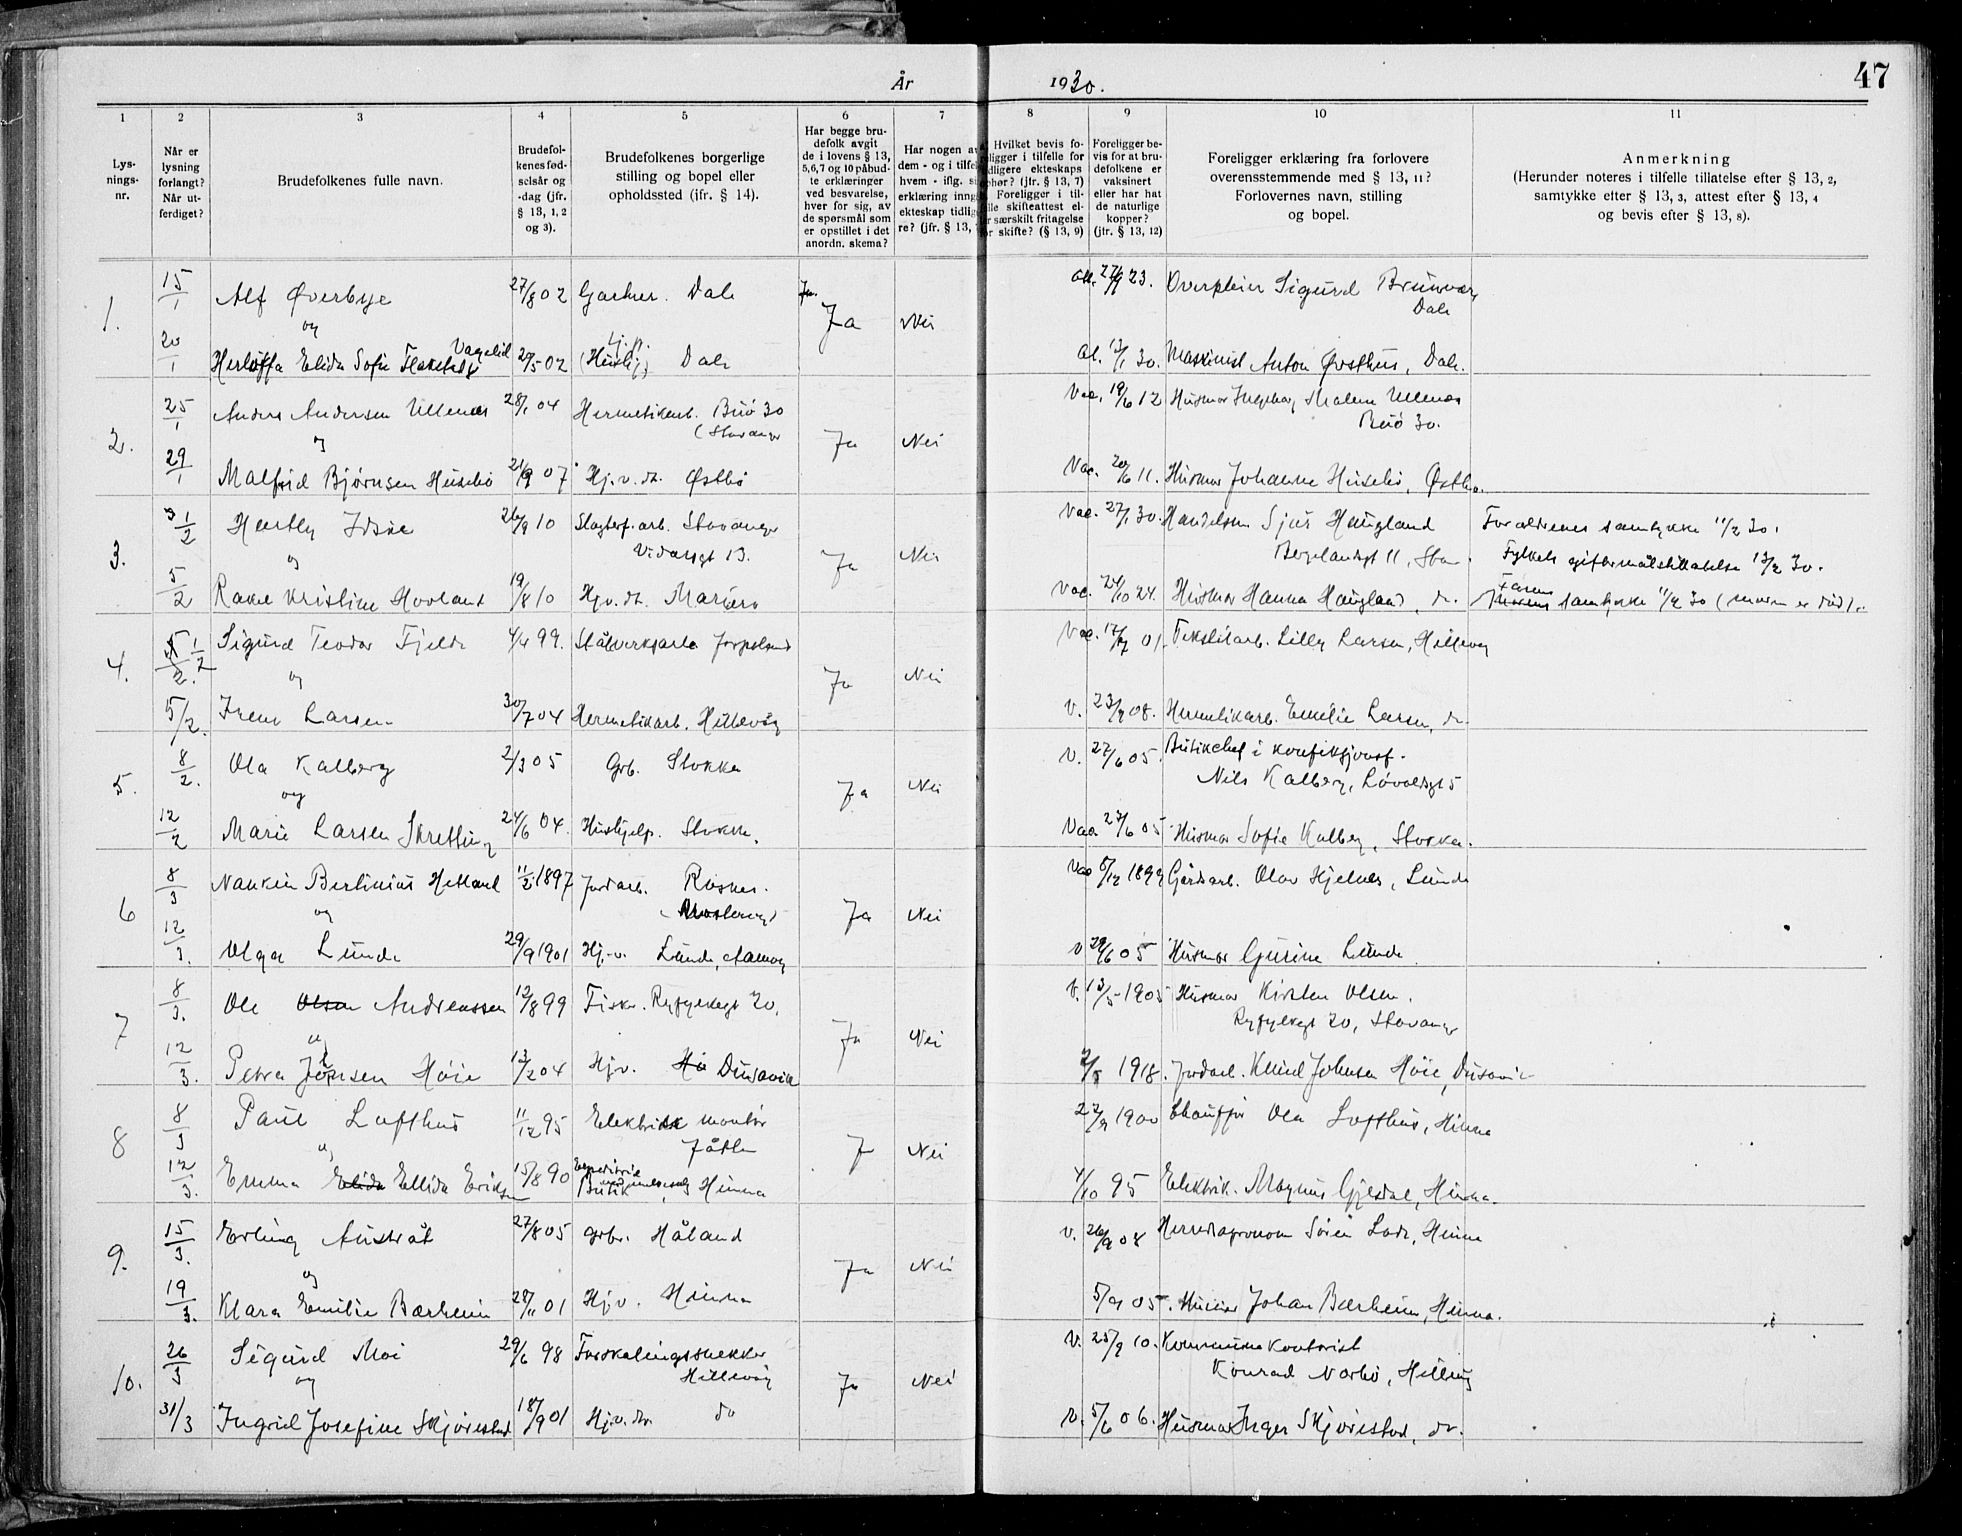 År 1930.
47
1 2 3 4 5 6 7 8 9 10 11
Lys-
nings-
nr.
Når er
lysning
forlangt?
Når ut-
ferdiget?
Brudefolkenes fulle navn.
Brudefol-
kenes fød-
selsår og
-dag (jfr.
§ 13, 1, 2
og 3).
Brudefolkenes borgerlige
stilling og bopel eller
opholdssted (jfr. § 14).
Har begge bru-
defolk avgit
de i lovens § 13,
5,6,7 og 10 påbud-
te erklæringer
ved besvarelse,
hver for sig, av
de spørsmål som
er opstillet i det
anordn. skema?
Har nogen av
dem - og i tilfel
hvem - iflg. si
erklæring inng
ekteskap tidlig
re? (jfr. § 13,
Hvilket bevis fo-
religger i tilfelle for
tidligere ekteskaps
ophør? (jfr. § 13, 7)
Foreligger i til-
felle skifteattest el-
er særskilt fritagelse
for skifte? (§ 13, 9)
Foreligger be-
vis for at bru-
defolkene er
vaksinert
eller har hat
de naturlige
kopper?
(jfr. § 13, 12)
Foreligger erklæring fra forlovere
overensstemmende med § 13, 11?
Forlovernes navn, stilling
og bopel.
Anmerkning
(Herunder noteres i tilfelle tillatelse efter § 13, 2,
samtykke efter § 13, 3, attest efter § 13, 4
og bevis efter § 13, 8).
1. 15/1 Alf Øverbye 27/8 02 Gartner. Dale Ja Nei 23. Overpleier Sigurd
Dale
og
20/1 Herloffa Elida Sofie 29/5 02 Dale 30. Maskinist Anton Østhus, Dale.
2. 25/1 Anders Andersen Ullenes 28/1 04 Hermetikarb. Buø 30 Ja Nei Vac. 19/6 12 Husmor Ingeborg Malene Ullenes
(Stavanger Buø 30.
29/1 Malfrid Bjørnsen Husebø 21/9 07 Hj.v.dt. Østbø Vac. 20/6 11. Husmor Johanne Husebø, Østbø.
3. 1/2 26/9 10 Slagterf.arb. Stavanger Ja Nei Vac. 27/1 30. Handelsm Sjur Haugland Foreldrenes samtykke 11/2 30.
Vidarsgt 13. Bergelandsgt 11, Stav. Fylkets giftermålstillatelse 13/2 30.
og
5/2 Rakel Kristine Hovland 19/8 10 Hjv.dt. Mariero Vac. 24/10 24. Husmor Hanna Haugland, do. Farens
samtykke 11/2 30 (moren er død).
4. 1/2 Sigurd Teodor Fjelde 4/4 99. Stålverksarb. Jørpeland Ja Nei Vac. 17/7 01. Tekstilarb. Lilly Larsen, Hillevåg
og
5/2. Irene Larsen 30/7 04 Hermetikarb. Hillevåg V. 23/9 08. Hermetikarb. Emilie Larsen, do.
5. 8/2. Ola Kalberg 2/3 05 Grb. Stokka Ja Nei V. 27/6 05. Butikchef i konfeksjonsf.
Nils Kalberg, Løvoldsgt 5
og
12/2 Marie Larsen Skretting 24/6 04. Hushjelp. Stokka. Vac 27/6 05 Husmor Sofie Kalberg, Stokka.
6 8/3 Nankin Bertinius Hetland 11/2 1897 Jordarb. Rosnes. Ja Nei Vac 5/12 1899 Gårdarb. Olav Hjelnes, Lunde
(Mosterøy)
og
12/3. Olga Lunde 29/9 1901 Hj.v. Lunde, V 29/6 05 Husmor Gurine Lunde
7 8/3. Ole Olsen Andreassen 12/8 99 Fisker. Ryfylkegt 20. Ja Nei V. 13/5 1905 Husmor Kirsten Olsen.
Ryfylkegt 20, Stavanger
og
12/3. Petra Johnsen Høie 13/2 04 Hjv. Dusavik 1918. Jordarb. Knud Johnsen Høie, Dusavik
8 8/3 Paul Lofthus 11/12 95 Elektrisk montør J Nei 27/9 1900 Chauffør Ola Lofthus, Hinna
Jåtten
og
12/3. Emma Elida Ellida Eriksen 15/8 90
Butik, Hinna 4/10 95 Elektrik. Magnus Gjesdal, Hinna.
9. 15/3. Erling Austråt 27/8 05 grbr. Håland Ja Nei V. 26/9 08 Herredsagronom Søren Lode, Hinna
og
19/3. Klara Emilie Bærheim 28/11 01 Hjv. Hinna 5/9 05. Johan Bærheim, Hinna.
10. 26/3 Sigurd Moi 29/6 98 Forskalingssnekker Ja Nei V. 25/9 10. Kommunekontorist
Hillevåg Konrad Norbø, Hillevåg
og
31/3 Ingrid Josefine Skjørestad 18/9 01 Hj.v.dtr. do V. 5/6 06. Husmor Inger Skjørestad, do.